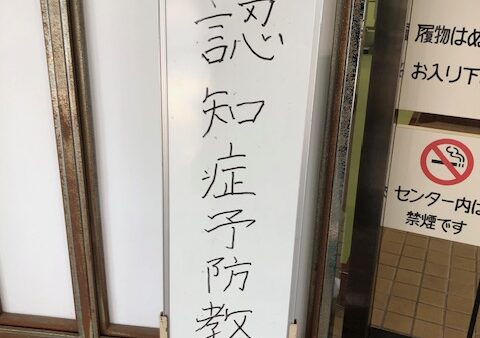 認知症予防教
履物はぬ
お入り下
センター内は
禁煙です